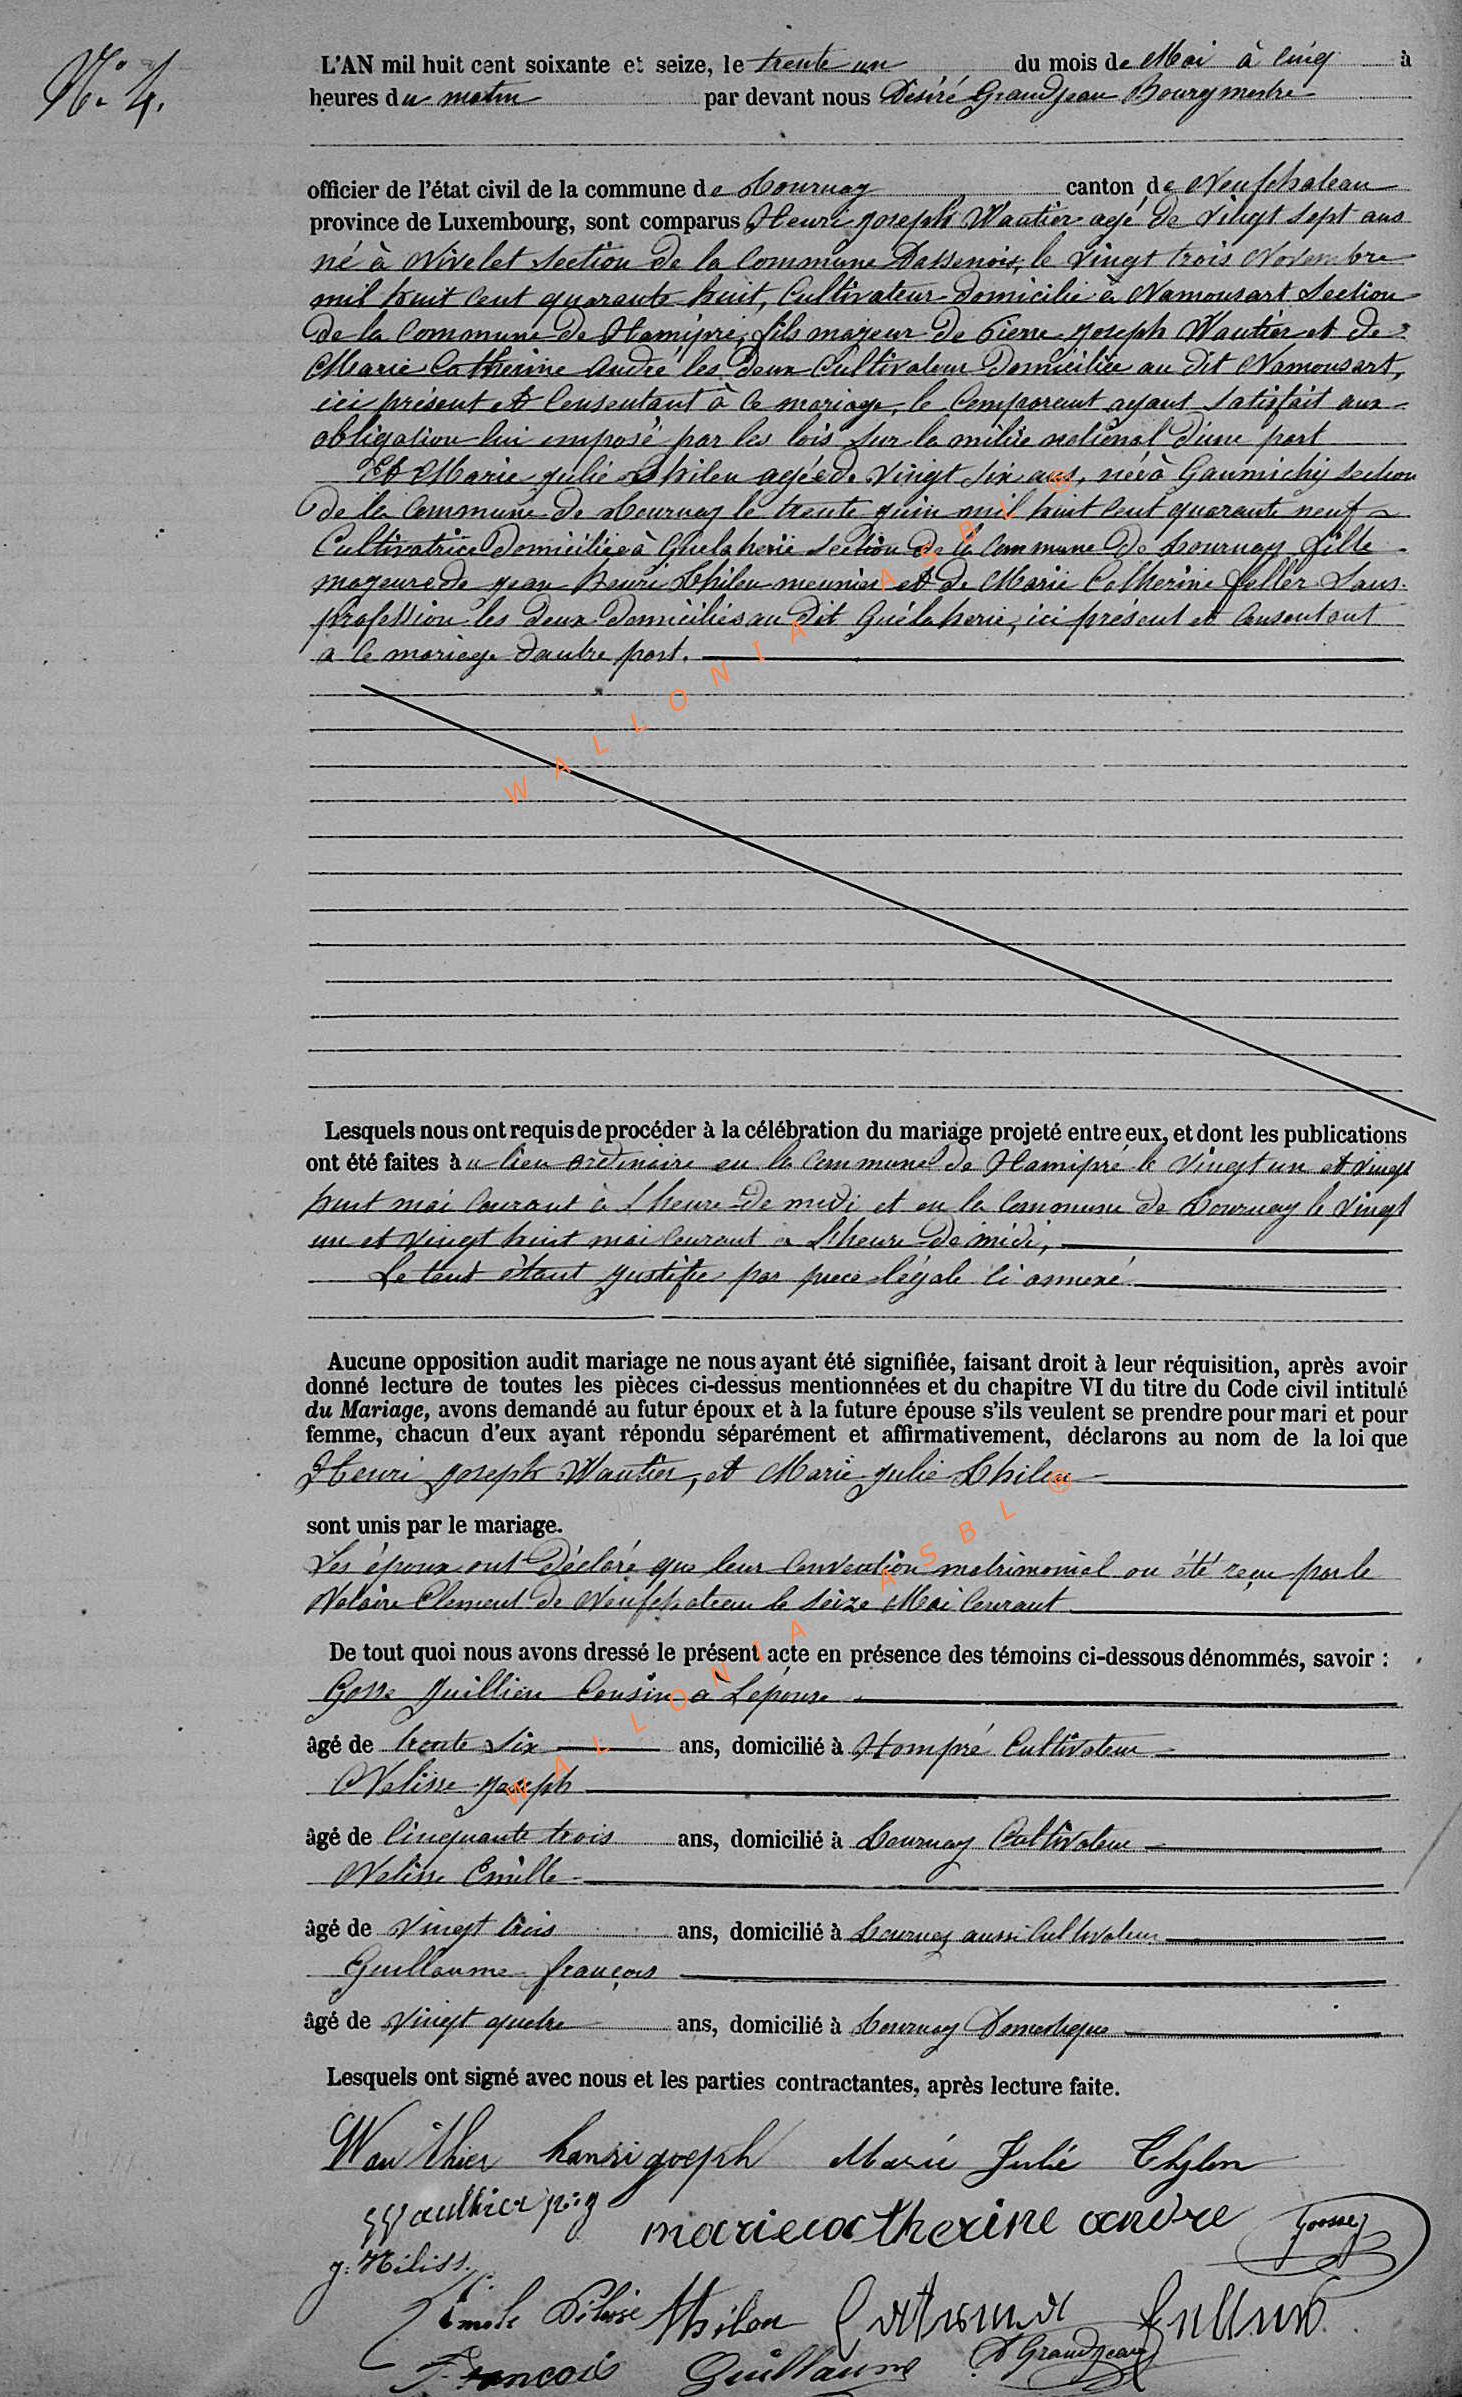 N° 4.
L'AN mil huit cent soixante et seize, le trente un du mois de Mai à cinq à
heures du matin par devant nous Désiré Grandjean Bourgmestre
officier de l'état civil de la commune de Tournay canton de Neufchateau
province de Luxembourg, sont comparus Henri joseph Wautier agé de vingt sept ans
né à Nivelet section de la commune Dassenois, le vingt trois Novembre
mil huit cent quarante huit, Cultivateur domicilié à Namousart section
de la commune de Hamipré, fils majeur de Pierre joseph Wautier et de
Marie Catherine André les deux Cultivateur domiciliée au dit Namousart,
ici présent et Consentant à ce mariage, le Comparant ayant satisfait aux
obligation lui imposé par les lois sur la milice national d'une part
Et Marie julie Thilen agée de vingt six ans, née à Gaumichy section
de la commune de Tournay le trente juin mil huit cent quarante neuf
Cultivatrice domiciliée à Guelaherie section de la commune de Tournay fille
majeure de jean henri Thilen meunier et de Marie Catherine feller sans
profession les deux domiciliés au dit Guélaherie, ici présent et consentant
a ce mariage dautre part.
Lesquels nous ont requis de procéder à la célébration du mariage projeté entre eux, et dont les publications
ont été faites à u lieu ordinaire en la commune de Hamipré le vingt un et vingt
huit mai courant à l'heure de midi et en la commune de Tournay le vingt
un et vingt huit mai courant a l'heure de midi,
Le tout étant justifie par piece légale ci annexé
Aucune opposition audit mariage ne nous ayant été signifiée, faisant droit à leur réquisition, après avoir
donné lecture de toutes les pièces ci-dessus mentionnées et du chapitre VI du titre du Code civil intitulé
du Mariage, avons demandé au futur époux et à la future épouse s'ils veulent se prendre pour mari et pour
femme, chacun d'eux ayant répondu séparément et affirmativement, déclarons au nom de la loi que
Henri joseph Wautier, et Marie julie Thilen
sont unis par le mariage.
Les époux ont déclaré que leur convention matrimonial ou été reçu par le
Notaire Clement de Neufchateau le seize Mai Courant
De tout quoi nous avons dressé le présent acte en présence des témoins ci-dessous dénommés, savoir :
Gosse Juillien Cousin a Lépouse
âgé de trente six ans, domicilié à Hompré Cultivateur
Nelisse joseph
âgé de Cinquante trois ans, domicilié à Tournay Cultivateur
Nelisse Emille
âgé de vingt trois ans, domicilié à Tournay aussi Cultivateur
Guillaume françois
âgé de vingt quatre ans, domicilié à Tournay Domestique
Lesquels ont signé avec nous et les parties contractantes, après lecture faite.
Wauthier henri joseph Marie Julie Thylen
Wauthier p. j
mariecatherine andre Gosse
j: Néliss
Emile Nélisse Thilen
François Guillaume D Grandjean
WALLONIA ASBL ®
WALLONIA ASBL ®